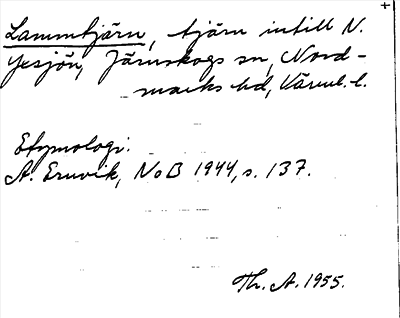 +
Lammtjärn, tjärn intill N.
Gesjön, Järnskogs sn, Nord-
marks hd, Värml. l.
Etymologi:
A. Ernvik, NoB 1944, s. 137.
Th. A. 1955.